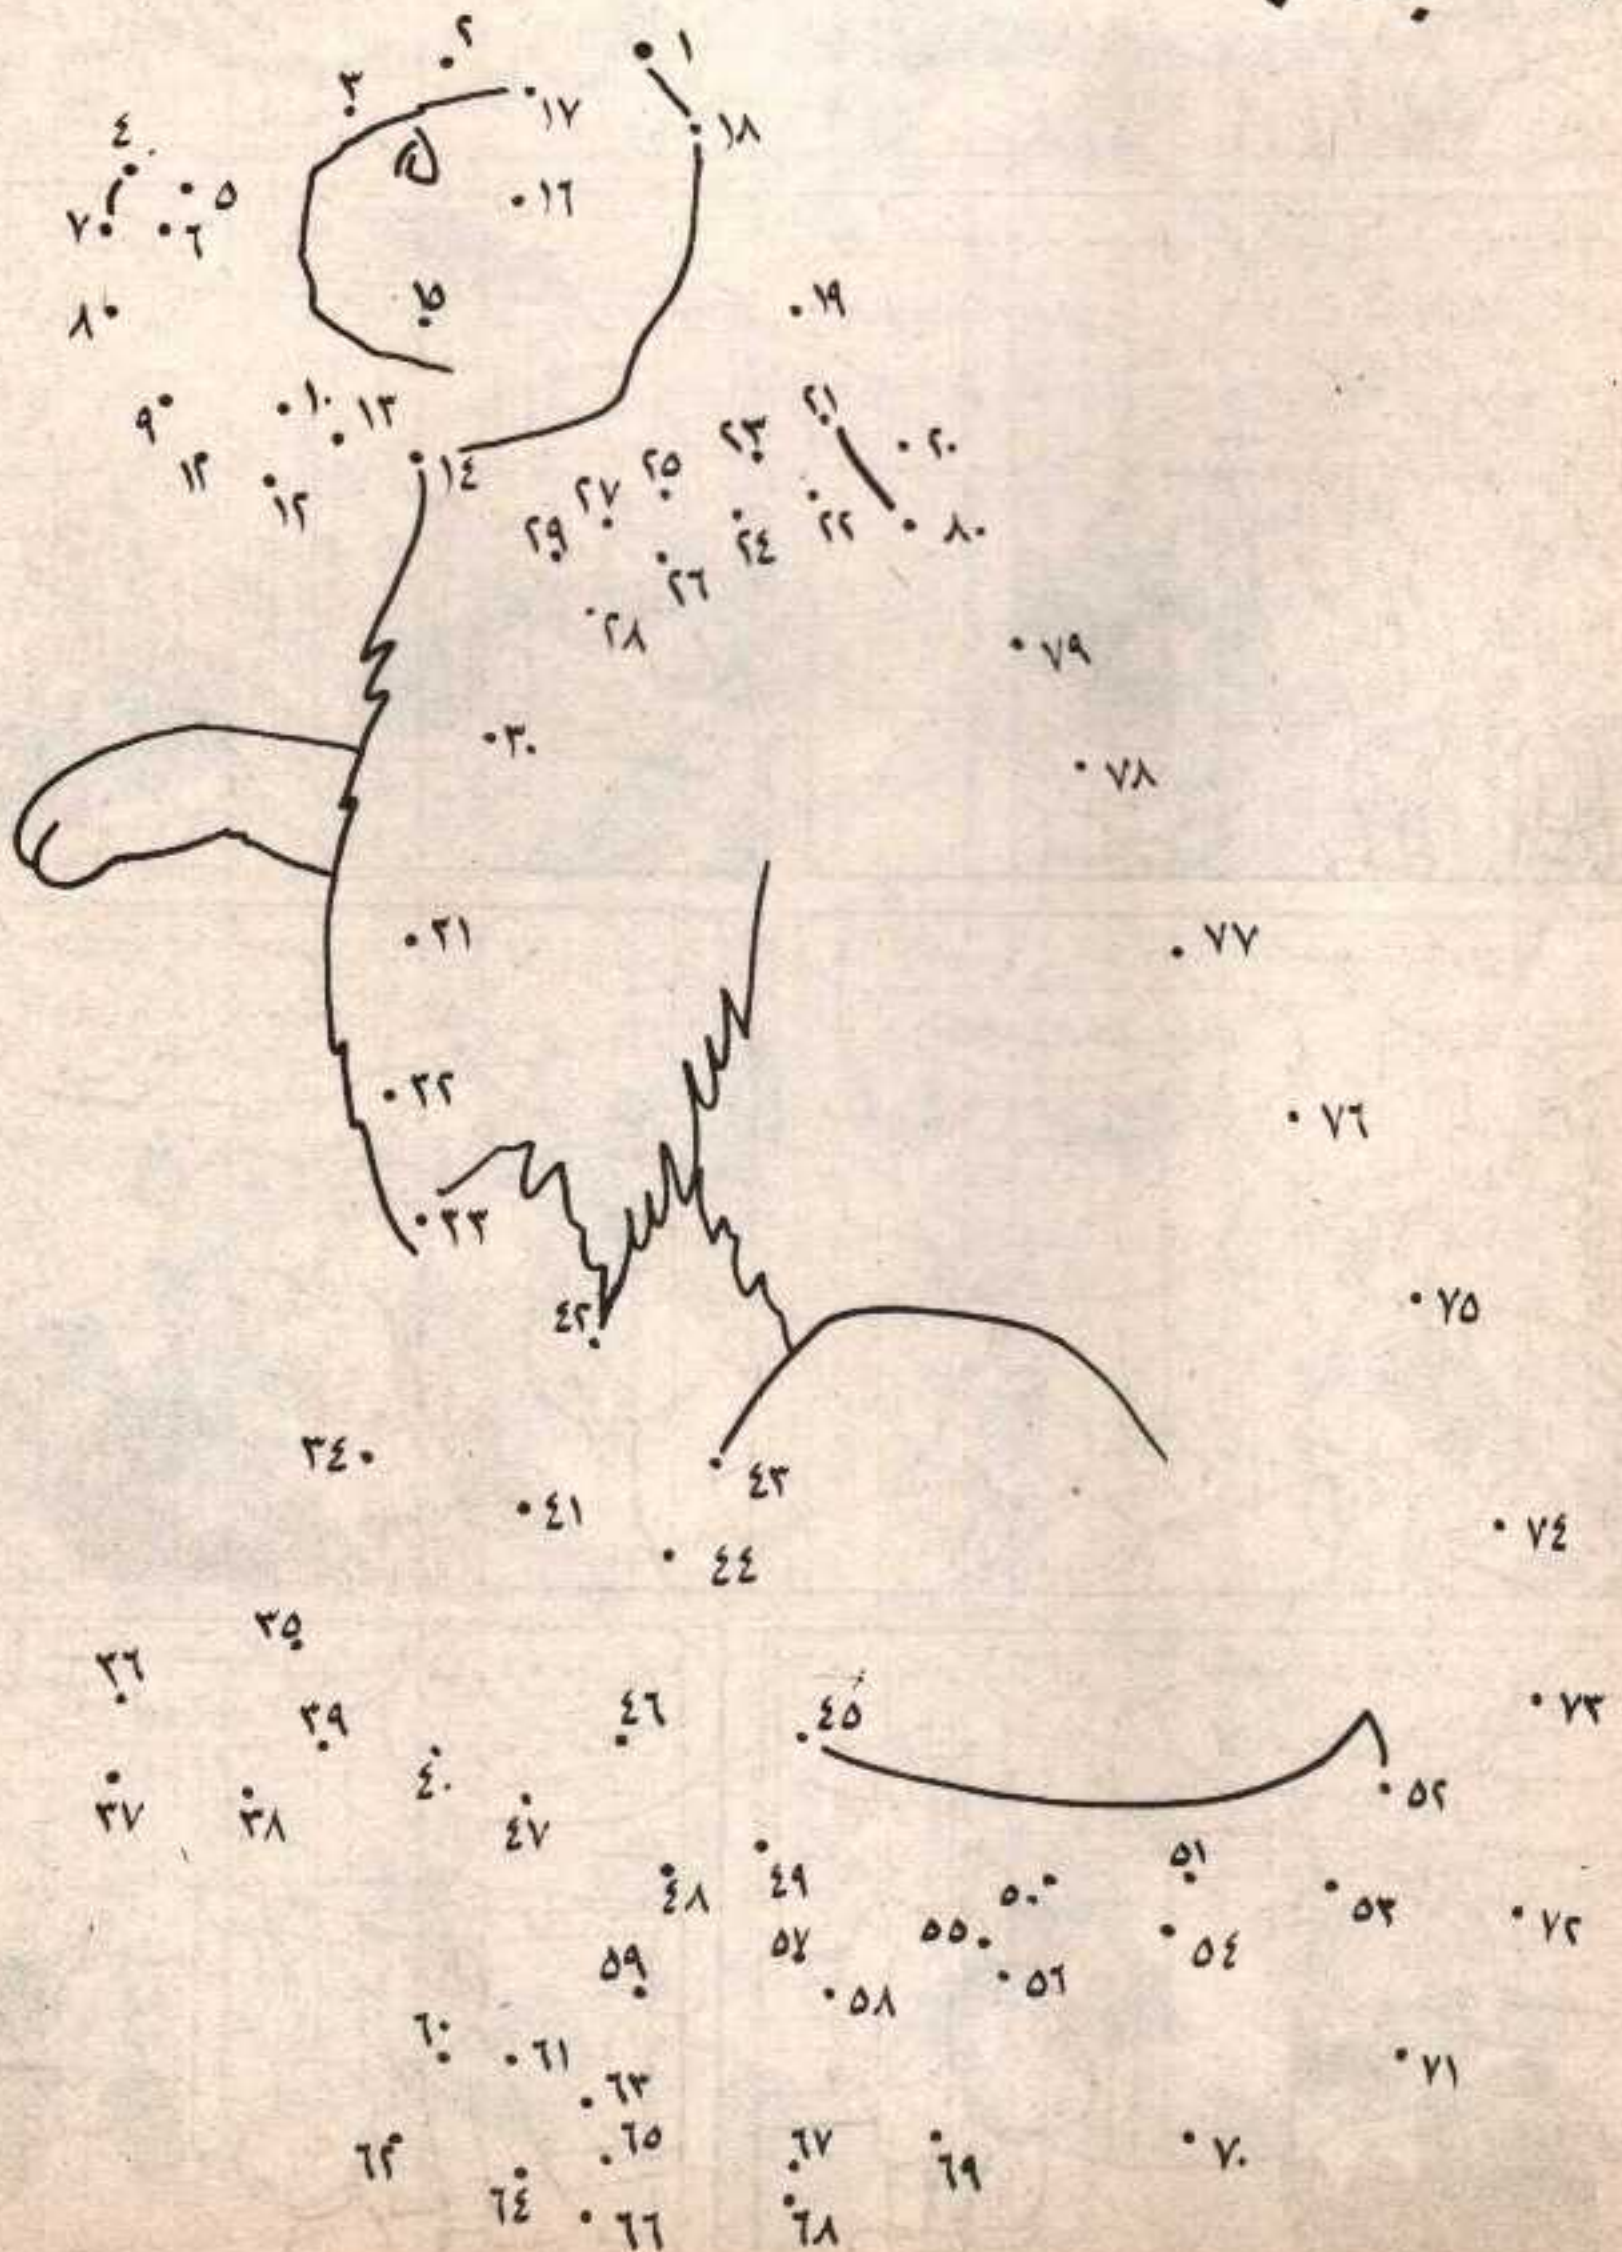 ١
٢
٣
٤
٥
٦
٧
٨
٩
١٠
١٢
١٣
١٤
١٥
١٦
١٧
١٨
١٩
٢٠
٢١
٢٢
٢٣
٢٤
٢٥
٢٦
٢٧
٢٨
٢٩
٣٠
٣١
٣٢
٣٣
٣٤
٣٥
٣٦
٣٧
٣٨
٣٩
٤٠
٤١
٤٢
٤٣
٤٤
٤٥
٤٦
٤٧
٤٨
٤٩
٥٠
٥١
٥٢
٥٣
٥٤
٥٥
٥٦
٥٧
٥٨
٥٩
٦٠
٦١
٦٢
٦٣
٦٤
٦٥
٦٦
٦٧
٦٨
٦٩
٧٠
٧١
٧٢
٧٣
٧٤
٧٥
٧٦
٧٧
٧٨
٧٩
٨٠